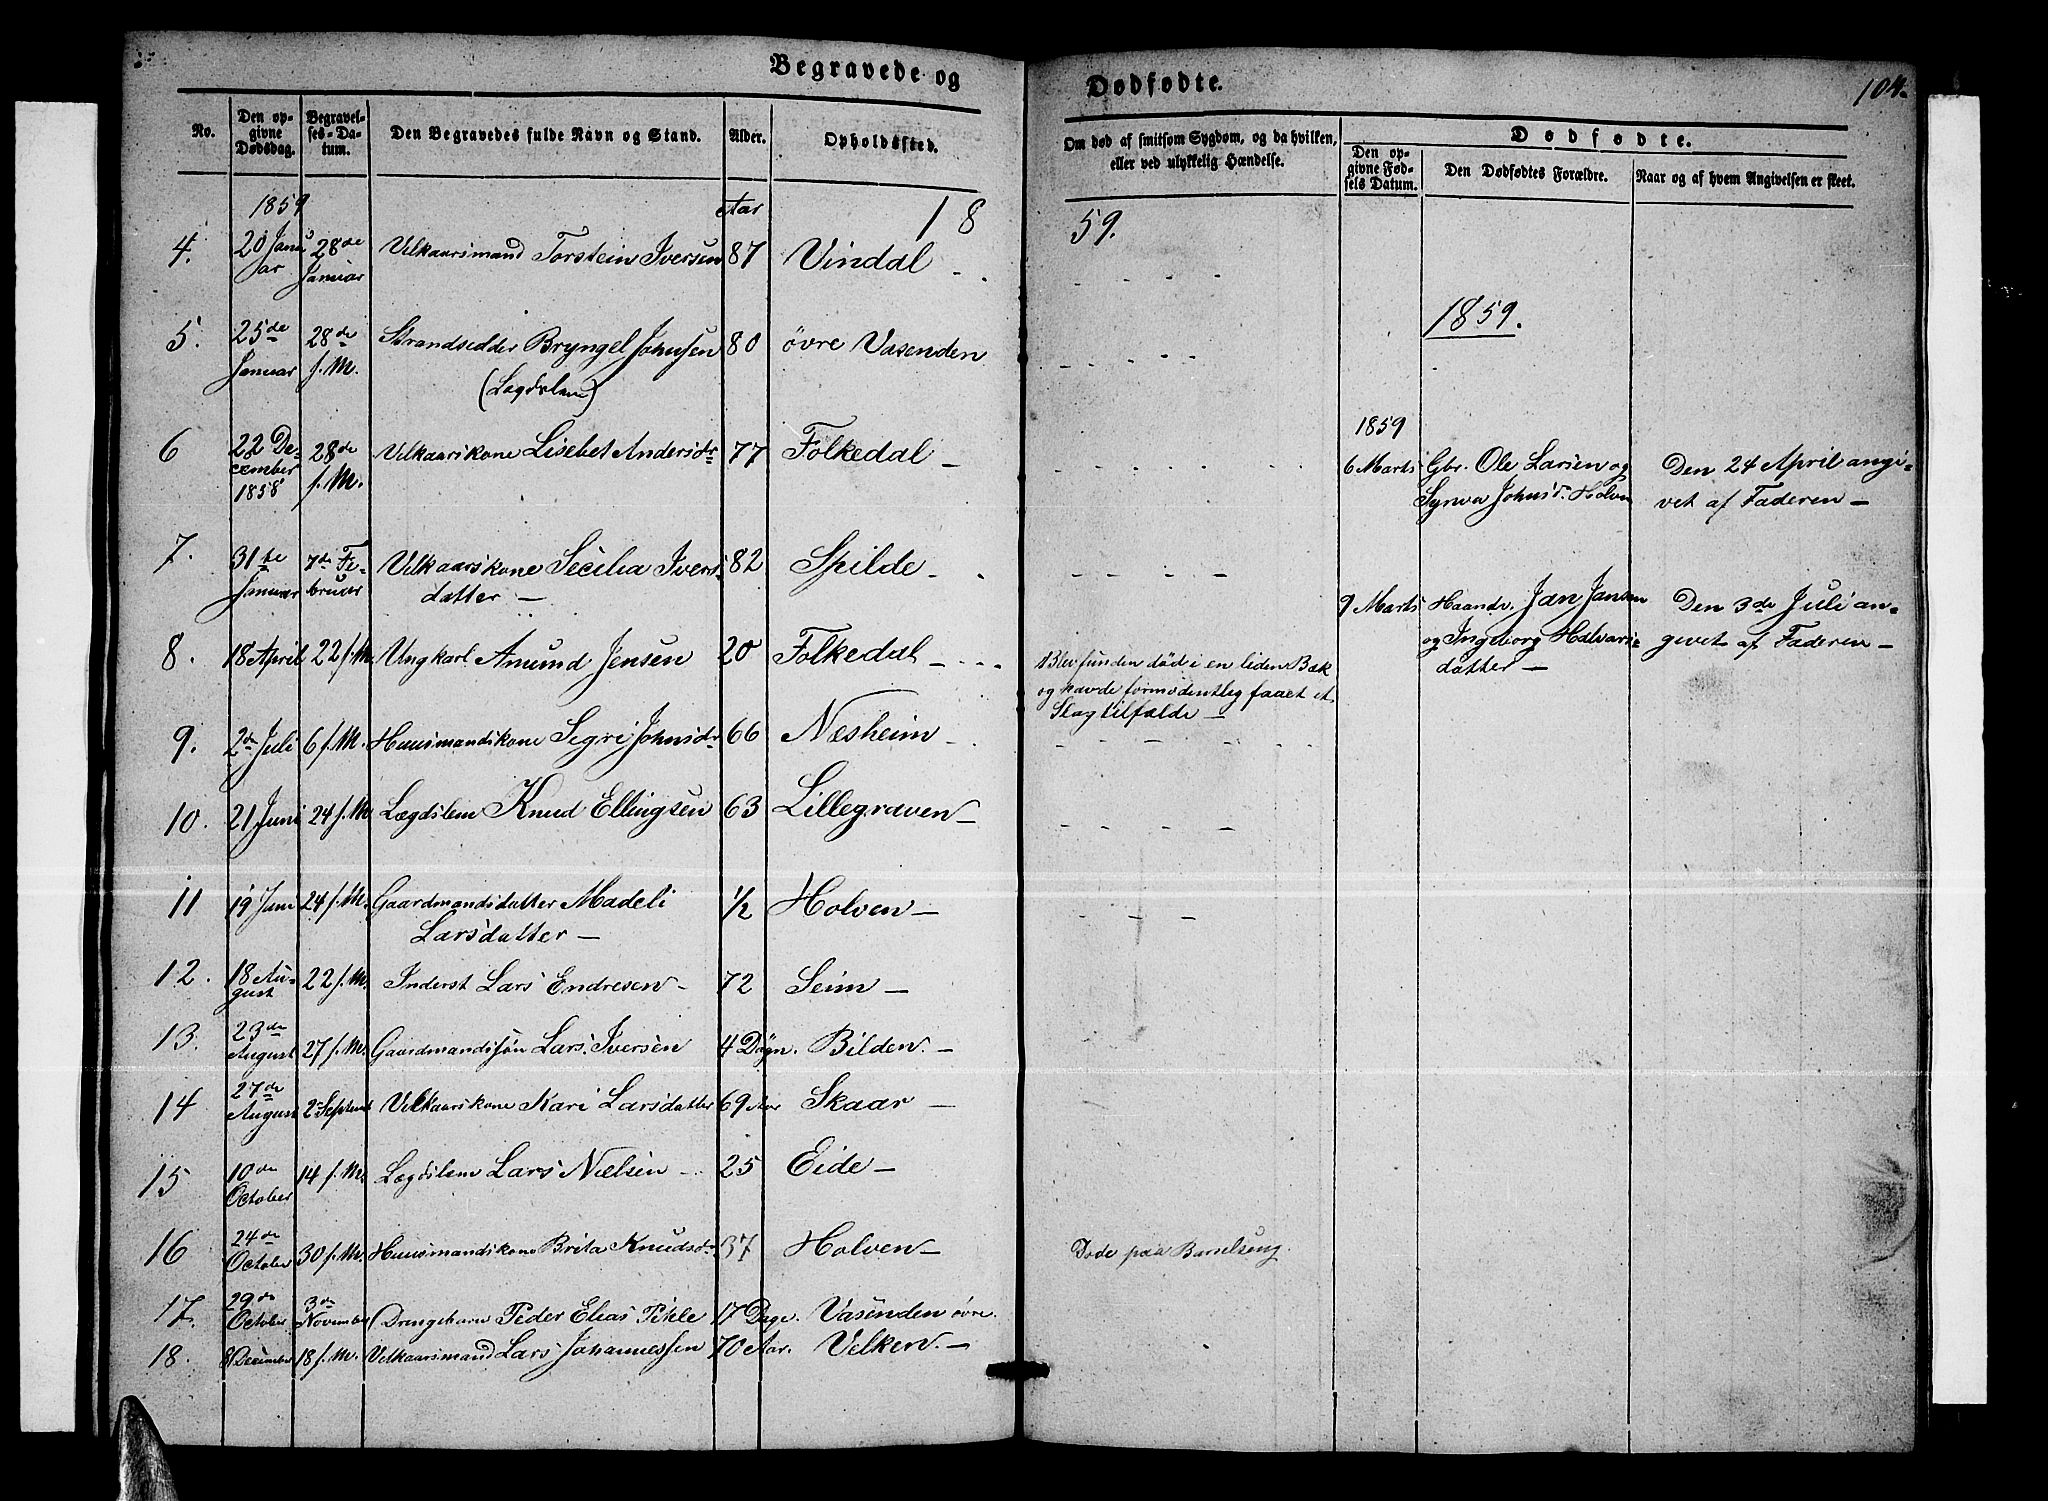 Begravede og
No.
Den op-
givne
Dødsdag.
Begravel-
ses-Da-
tum.
Den Begravedes fulde Navn og Stand.
Alder.
Opholdssted.
1859
Aar
18
4.
20 Janu
ar
28de
Januar
Vilkaarsmand Torstein Iversen
87
Vindal
5.
25de
Januar
28de
f. M.
Strandsedder Bryngel Johnsen
(Lægdslem)
80
øvre Vasenden
6
22 De-
cember
1858
28de
f. M.
Vilkaarskone Lisebet Andersdr
77
Folkedal –
7.
31te
Januar
7de Fe-
bruar
Velkaarskone Secilia Ivers-
datter –
82
Spilde –
8.
18 April
22 f. M.
Ungkarl Amund Jensen
20
Folkedal –
9.
2de Juli
6 f. M.
Huusmandskone Segri Johnsdr
66
Næsheim –
10.
21 Juni
24 f. M.
Lægdslem Knud Ellingsen
63
Lillegraven –
11
19 Juni
24 f. M.
Gaardmandsdatter Madeli
Larsdatter –
1/2
Holven –
12.
18 Au-
gust
22 f. M.
Inderst Lars Endresen –
72
Seim –
13.
23de
August
27 f. M.
Gaardmandssøn Lars Iversen
4 Døgn.
Bilden. –
14
27de
August
2 Septemb
Velkaarskone Kari Larsdatter
69 Aar
Skaar –
15
10de
October
14 f. M.
Lægdslem Lars Nielsen –
25
Eide –
16
24de
October
30 f. M.
Huusmandskone Brita Knudsdr
37
Holven –
17.
29de
October
3de
November
Drengebarn Peder Elias Pihle
17 Dage.
Vasenden øvre.
18.
8 December
18 f. M.
Velkaarsmand Lars Johannessen
70 Aar.
Velken. –
Dødfødte.
104.
Om død af smitsom Sygdom, og da hvilken,
eller ved ulykkelig Hændelse.
Dødfødte.
Den op-
givne Fød-
sels Datum.
Den Dødfødtes Forældre.
Naar og af hvem Angivelsen er skeet.
59.
1859.
1859
6 Marts
Gbr. Ole Larsen og
Johnsd. Holven
Den 24 April angi-
vet af Faderen –
9 Marts
Haandv. Jan Jansen
og Ingeborg Halvars-
datter –
Den 3de Juli an-
givet af Faderen –
Blev funden død i en liden Bæk
og havde formodentlig faaet et
Slagtilfælde –
Døde paa Barselseng.